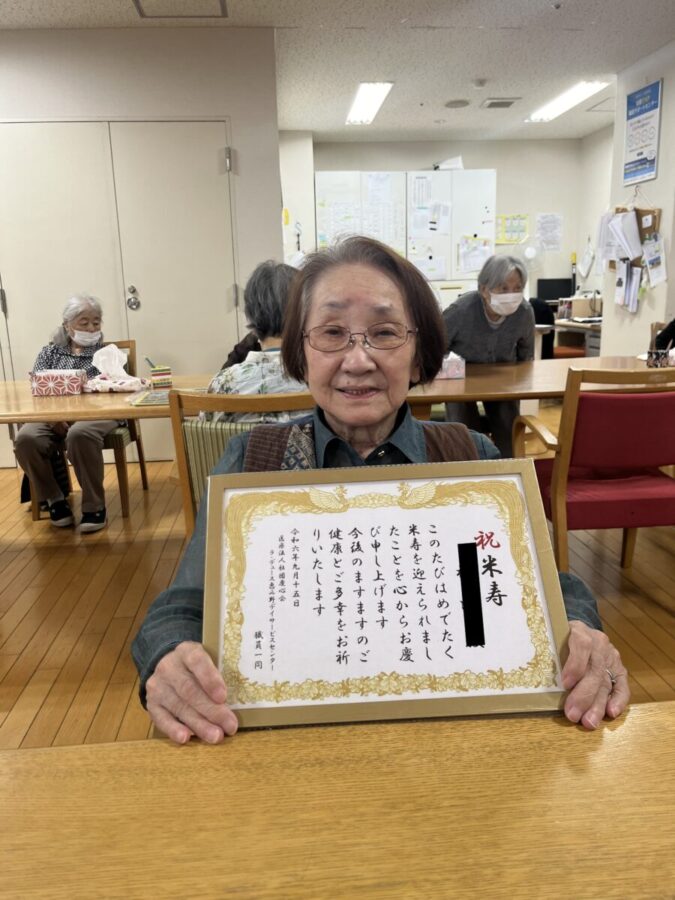 祝米寿
このたびはめでたく
米寿を迎えられまし
たことを心からお慶
び申し上げます
今後のますますのご
健康とご多幸をお祈
りいたします
令和六年九月十五日
医療法人社団
デイサービスセンター
職員一同